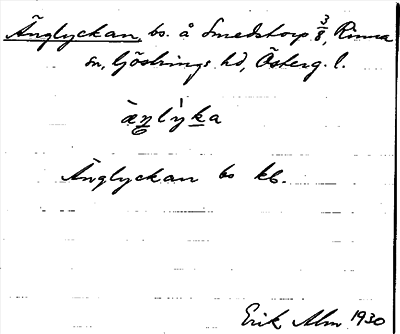 Änglyckan, bs. å Smedstorp 3/8, Rinna
sn, Göstrings hd, Österg. l.
Änglyckan bs kb.
Erik Alm 1930